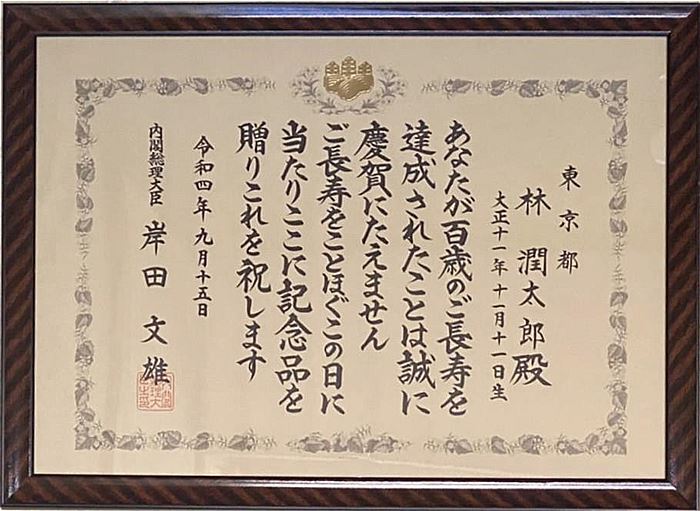 東京都
林潤太郎殿
大正十一年十一月十一日生
あなたが百歳のご長寿を
達成されたことは誠に
慶賀にたえません
ご長寿をことほぐこの日に
当たりここに記念品を
贈りこれを祝します
令和四年九月十五日
内閣総理大臣 岸田文雄